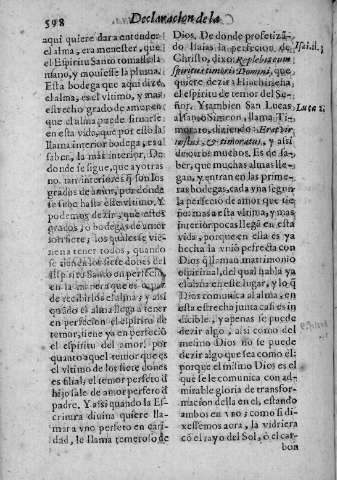 598
Declaracion de la
aqui quiere dara entender
el alma, era menester, que
el Espiritu Santo tomasse la
mano, y mouiesse la pluma.
Esta bodega que aqui dize
el alma, es el vltimo, y mas
estrecho grado de amor en
que el alma puede situarse
en esta vida, que por esso la
llama interior bodega, es a
saber, la mas interior. De
donde se sigue, que ay otras
no tan interiores q̃ son los
grados de amor, por donde
se sube hasta este vltimo. Y
podemos dezir, que estos
grados, o bodegas de amor
son siete, los quales se vie-
nena tener todos, quando
se tienen los siete dones del
espiritu Santo en perfecció
en la manera que es capaz
de recibirlos el alma; y assi
quãdo el alma llega a tener
en perfeccion el espiritu de
temor, tiene ya en perfeció
el espiritu del amor: por
quanto aquel temor que es
el vltimo de los siete dones
es filial; el temor perfeto d̃
hijo sale de amor perfeto d̃
padre. Y assi quando la Es-
critura diuina quiere lla-
mar a vno perfeto en cari-
dad, le llama temeroso de
Dios. De donde profetizã-
do Isaias la perfecion de
Christo, dixo: Replebit eum
spiritus timoris Domini, que
quiere dezir, le Hinchirà
el espiritu de temor de Se-
ñor. Y tambien San Lucas
al santo Simeon, llama Ti-
morato, diziendo: Erat vir
iustus, & timoratus, y assi
de otros muchos. Es de sa-
ber, que muchas almas lle-
gan, y entran en las prime-
ras bodegas, cada vna segun
la perfeció de amor que tie
ne: mas a esta vltima, y mas
interior pocas llegã en esta
vida, porque en ella es ya
hecha la vnió perfecta con
Dios q̃ llaman matrimonio
espiritual, del qual habla ya
el alma en este lugar, y lo q̃
Dios comunica al alma, en
esta estrecha junta casi es in
dicible, y apenas se puede
dezir algo, assi como del
mesmo Dios no se puede
dezir algo que sea como el:
porque el mismo Dios es el
que se le comunica con ad-
mirable gloria de transfor-
macion della en el, estando
ambos en vno; como si di-
xessemos aora, la vidriera
có el rayo del Sol, ó el car-
bon
Isai. 11.
Luca 2.